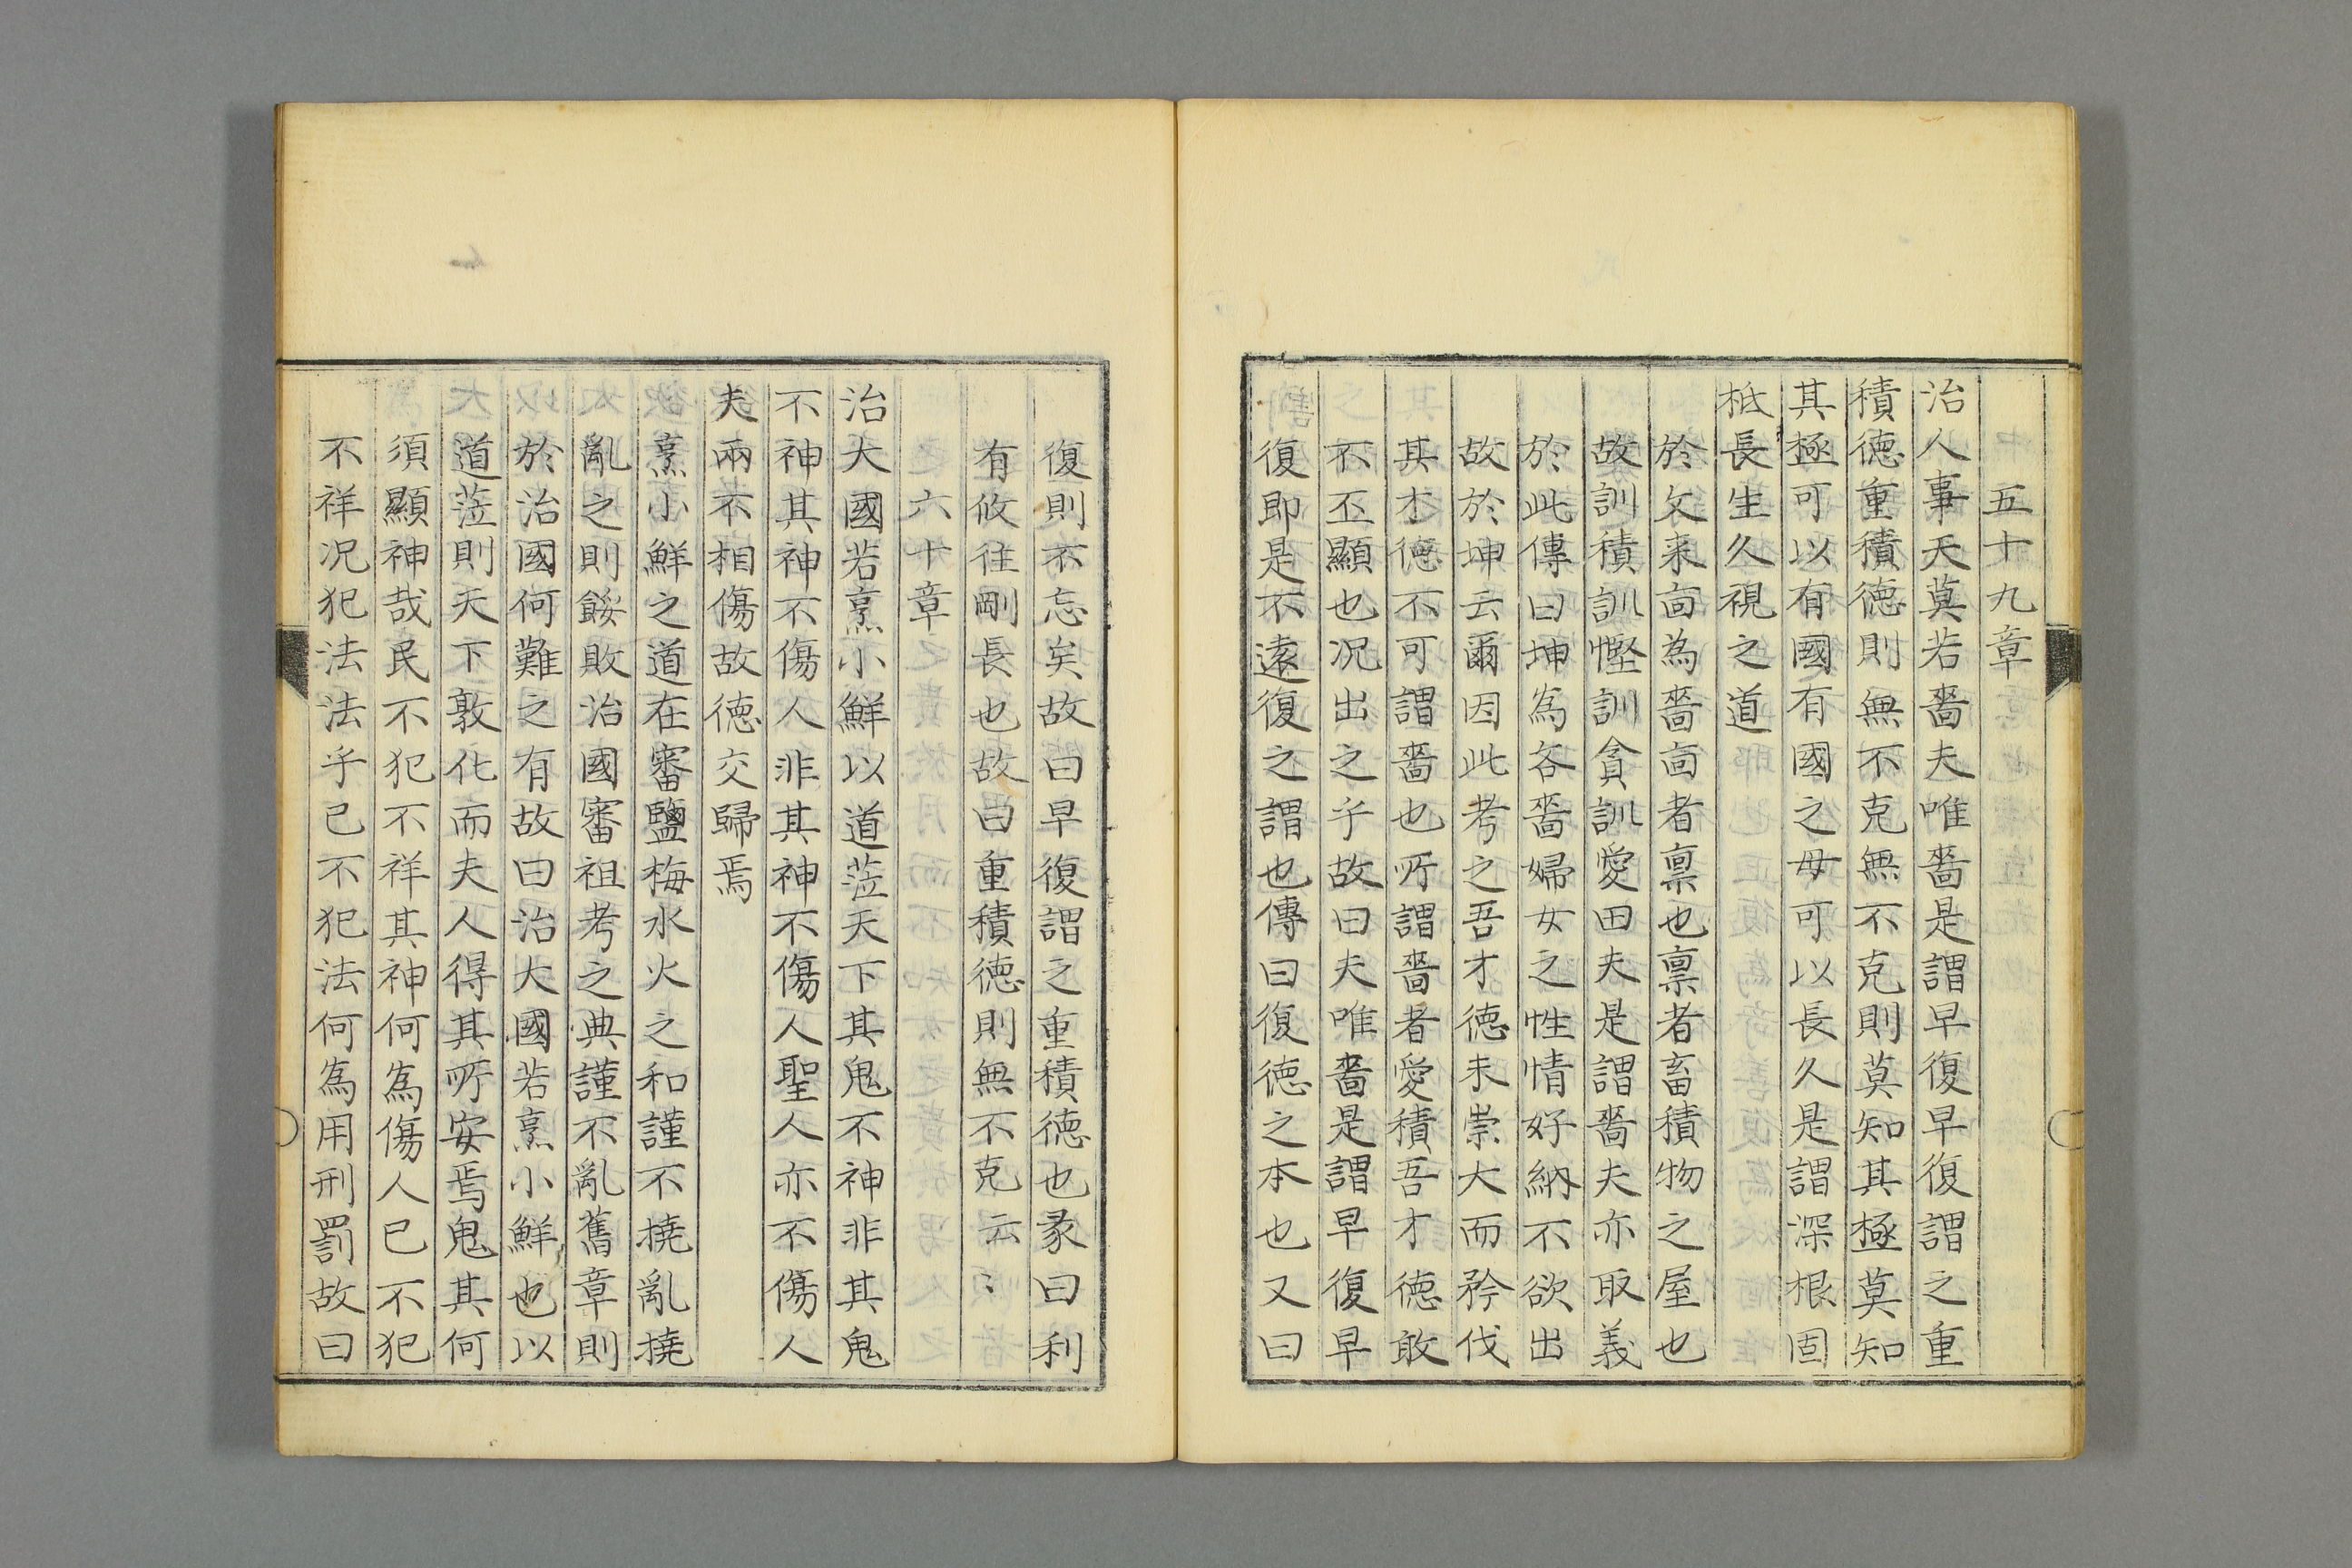 五十九章
治人事天莫若嗇夫唯嗇是謂早復早復謂之重
積徳重積徳則無不克無不克則莫知其極莫知
其極可以有國有國之母可以長久是謂深根固
柢長生久視之道
於文来㐭為嗇㐭者禀也禀者畜積物之屋也
故訓積訓慳訓貪訓愛田夫是謂嗇夫亦取義
於此傳曰坤為吝嗇婦女之性情好納不欲出
故於坤云爾因此考之吾才徳未崇大而矜伐
其才徳不可謂嗇也所謂嗇者愛積吾才徳敢
不丕顯也况出之乎故曰夫唯嗇是謂早復早
復即是不遠復之謂也傳曰復徳之本也又曰
復則不忘矣故曰早復謂之重積徳也彖曰利
有攸往剛長也故曰重積徳則無不克云〻
六十章
治大國若烹小鮮以道莅天下其鬼不神非其鬼
不神其神不傷人非其神不傷人聖人亦不傷人
夫兩不相傷故徳交歸焉
烹小鮮之道在審鹽梅水火之和謹不撓亂撓
亂之則餒敗治國審祖考之典謹不亂舊章則
於治國何難之有故曰治大國若烹小鮮也以
道莅則天下敦化而夫人得其所安焉鬼其何
須顯神哉民不犯不祥其神何為傷人已不犯
不祥况犯法法乎已不犯法何為用刑罰故曰